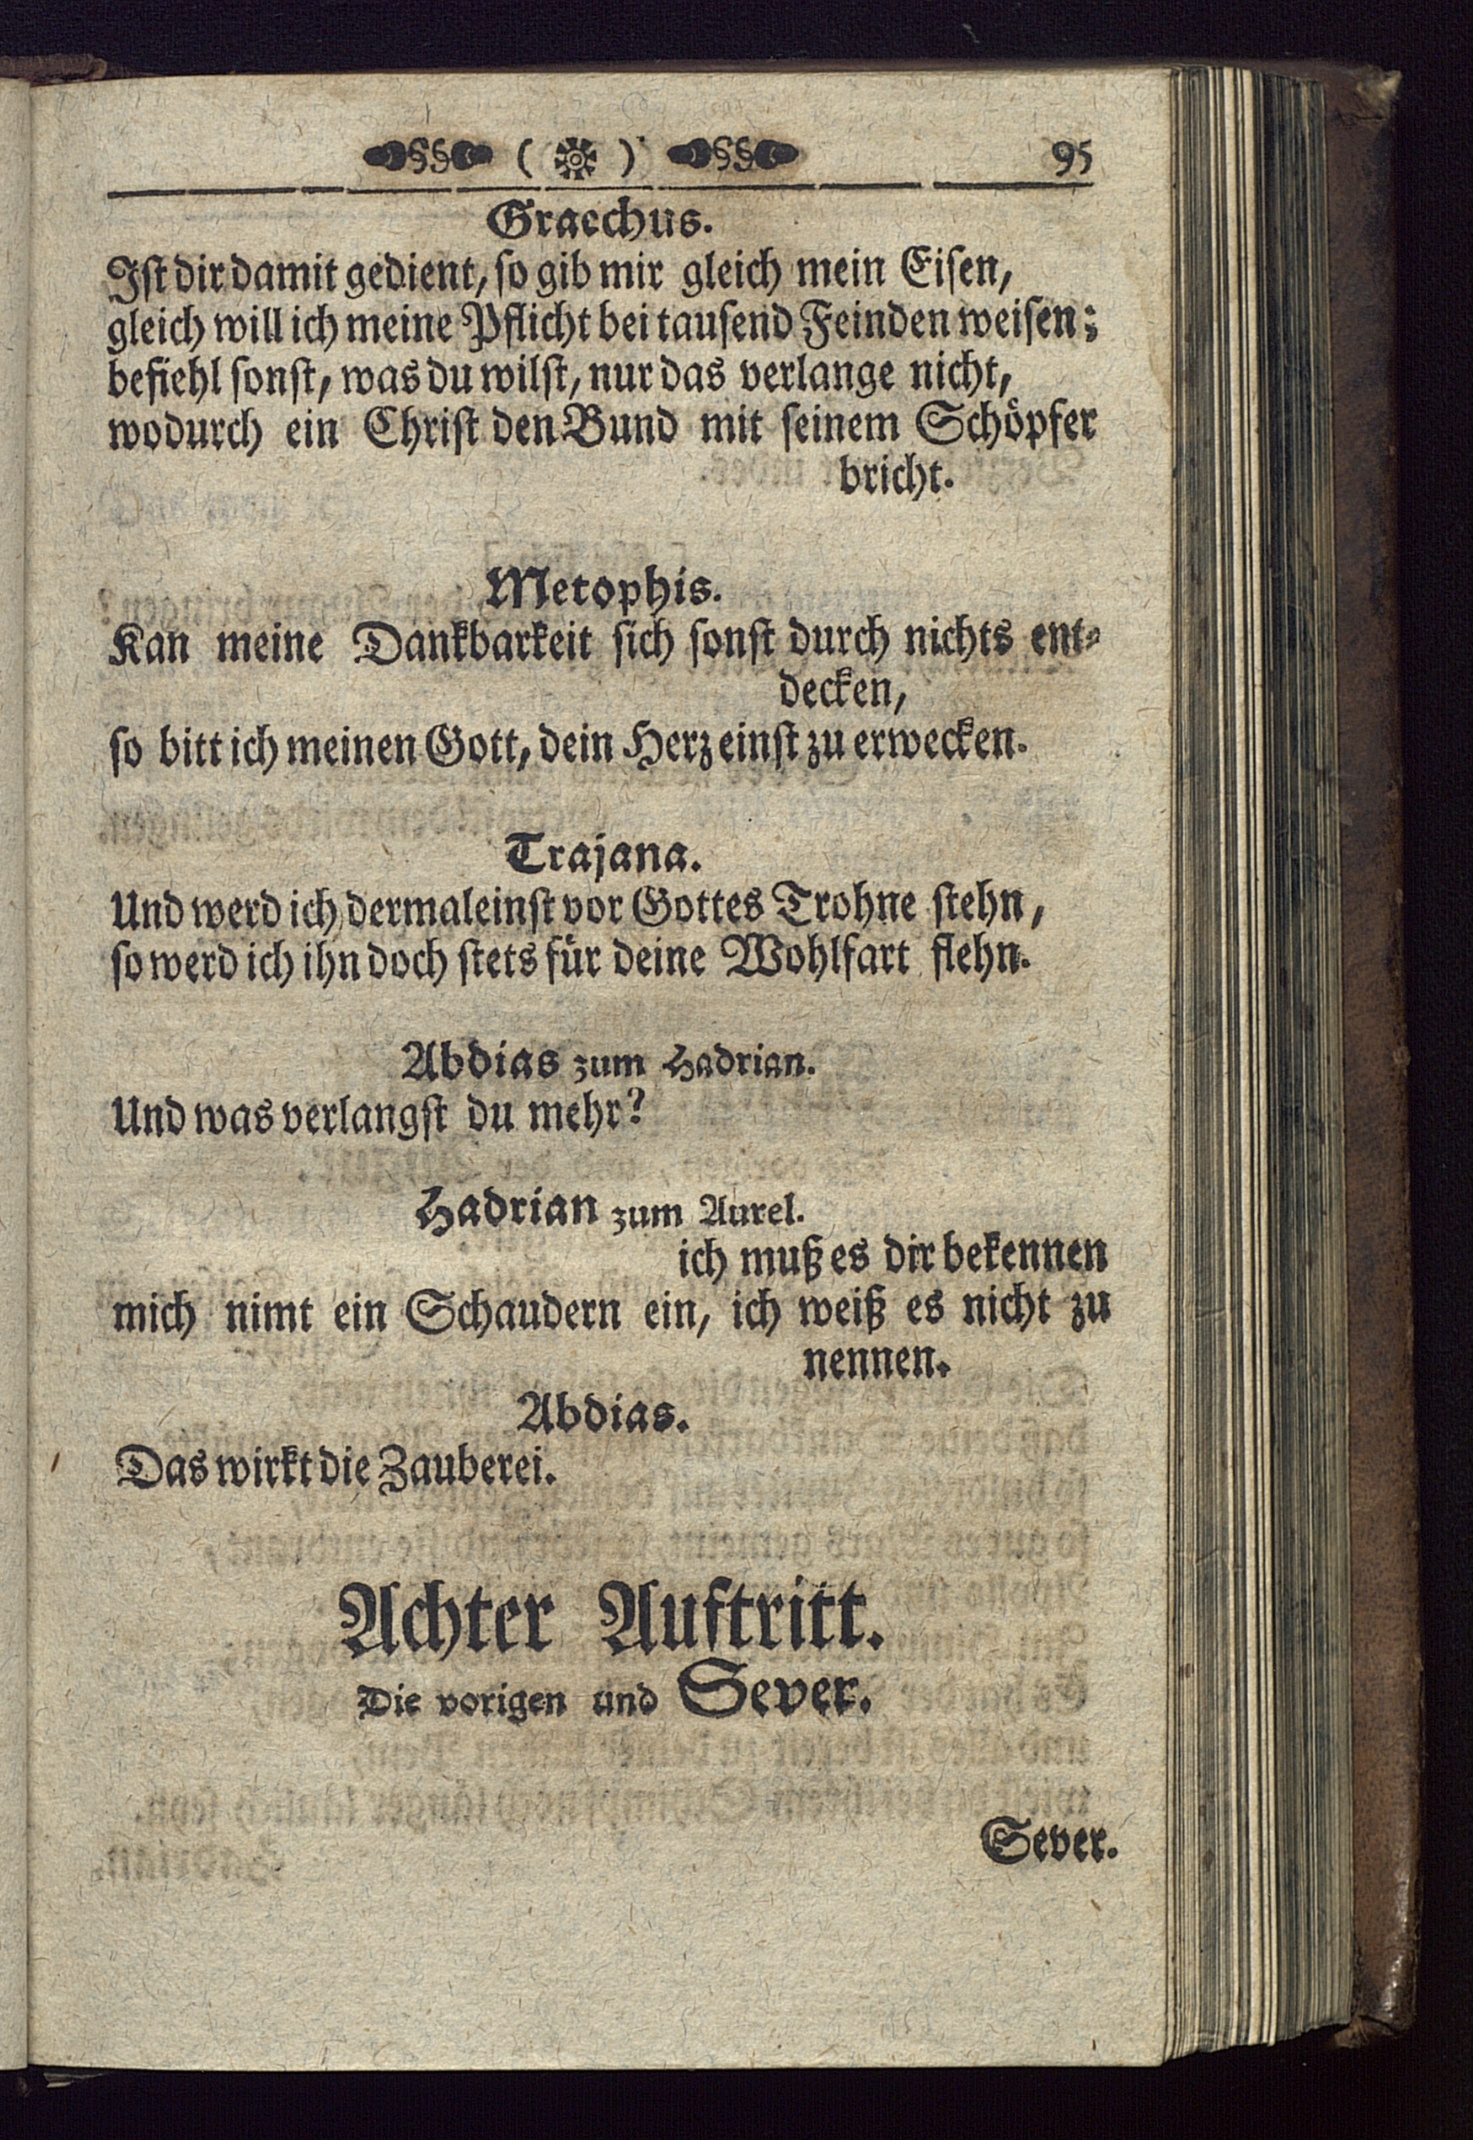 95
Gracchus.
Ist dir damit gedient, so gib mir gleich mein Eisen,
gleich will ich meine Pflicht bei tausend Feinden weisen;
befiehl sonst, was du wilst, nur das verlange nicht,
wodurch ein Christ den Bund mit seinem Schöpfer
bricht.
Metophis.
Kan meine Dankbarkeit sich sonst durch nichts ent-
decken,
so bitt ich meinen Gott, dein Herz einst zu erwecken.
Trajana.
Und werd ich dermaleinst vor Gottes Trohne stehn,
so werd ich ihn doch stets für deine Wohlfart flehn.
Abdias zum Hadrian.
Und was verlangst du mehr?
Hadrian zum Aurel.
ich muß es dir bekennen
mich nimt ein Schaudern ein, ich weiß es nicht zu
nennen.
Abdias.
Das wirkt die Zauberei.
Achter Auftritt.
Die vorigen und Sever.
Sever.